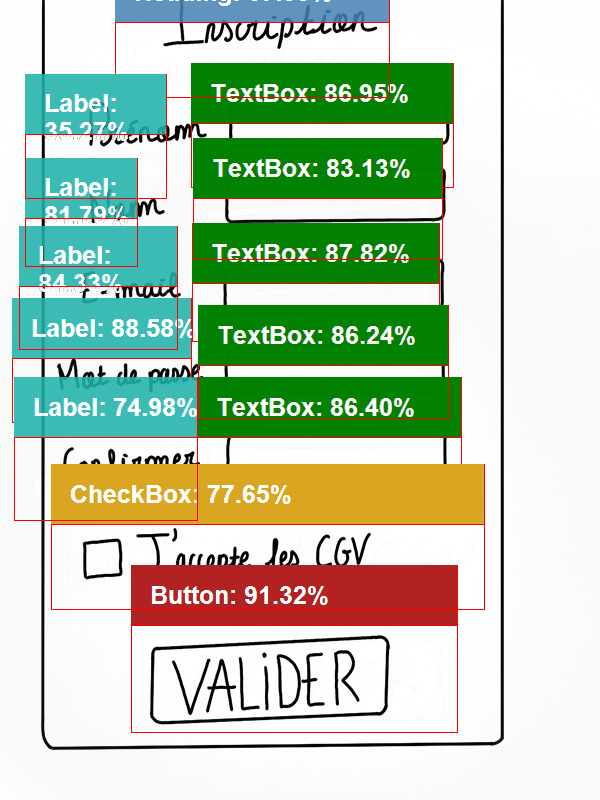 Inscription
Label: 35.27%
TextBox: 86.95%
Prénom
Label: 81.79%
TextBox: 83.13%
Nom
Label: 84.33%
TextBox: 87.82%
E-mail
Label: 88.58%
TextBox: 86.24%
Mot de passe
Label: 74.98%
TextBox: 86.40%
Confirmer
CheckBox: 77.65%
J'accepte les CGV
Button: 91.32%
VALIDER